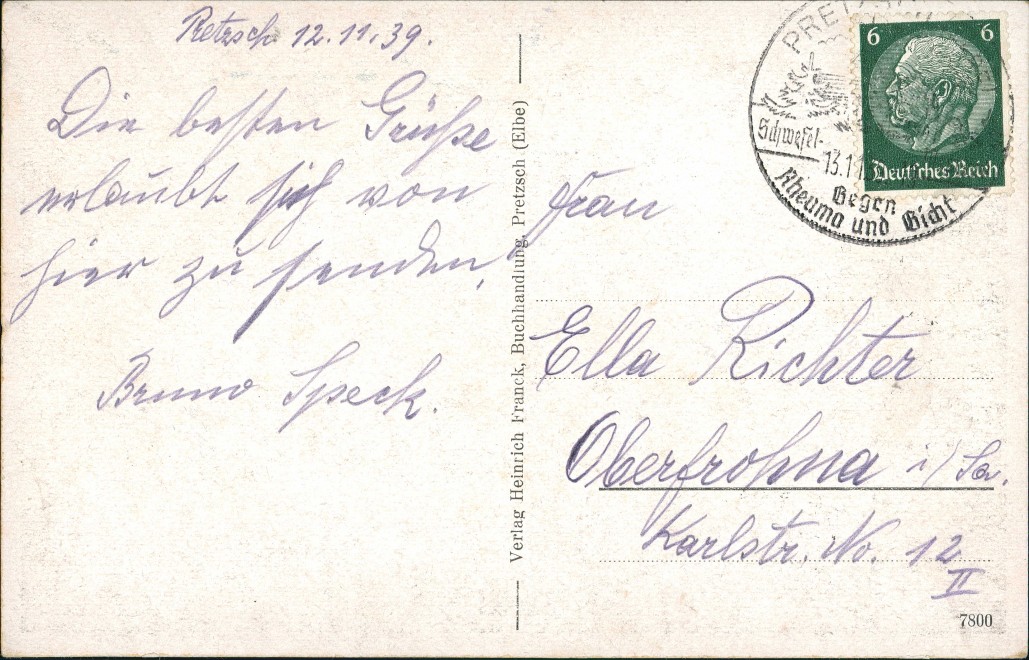 Retzsch 12.11.39.
Die besten Grüße
erlaubt sich von
hier zu senden.
Bruno Speck.
Verlag Heinrich Franck, Buchhandlung, Pretzsch (Elbe)
Schwefel-
13.11
Gegen
Rheuma und Gicht
6 6
Deutsches Reich
Frau
Ella Richter
Oberfrohna i/Sa.
Karlstr. No. 12
II
7800